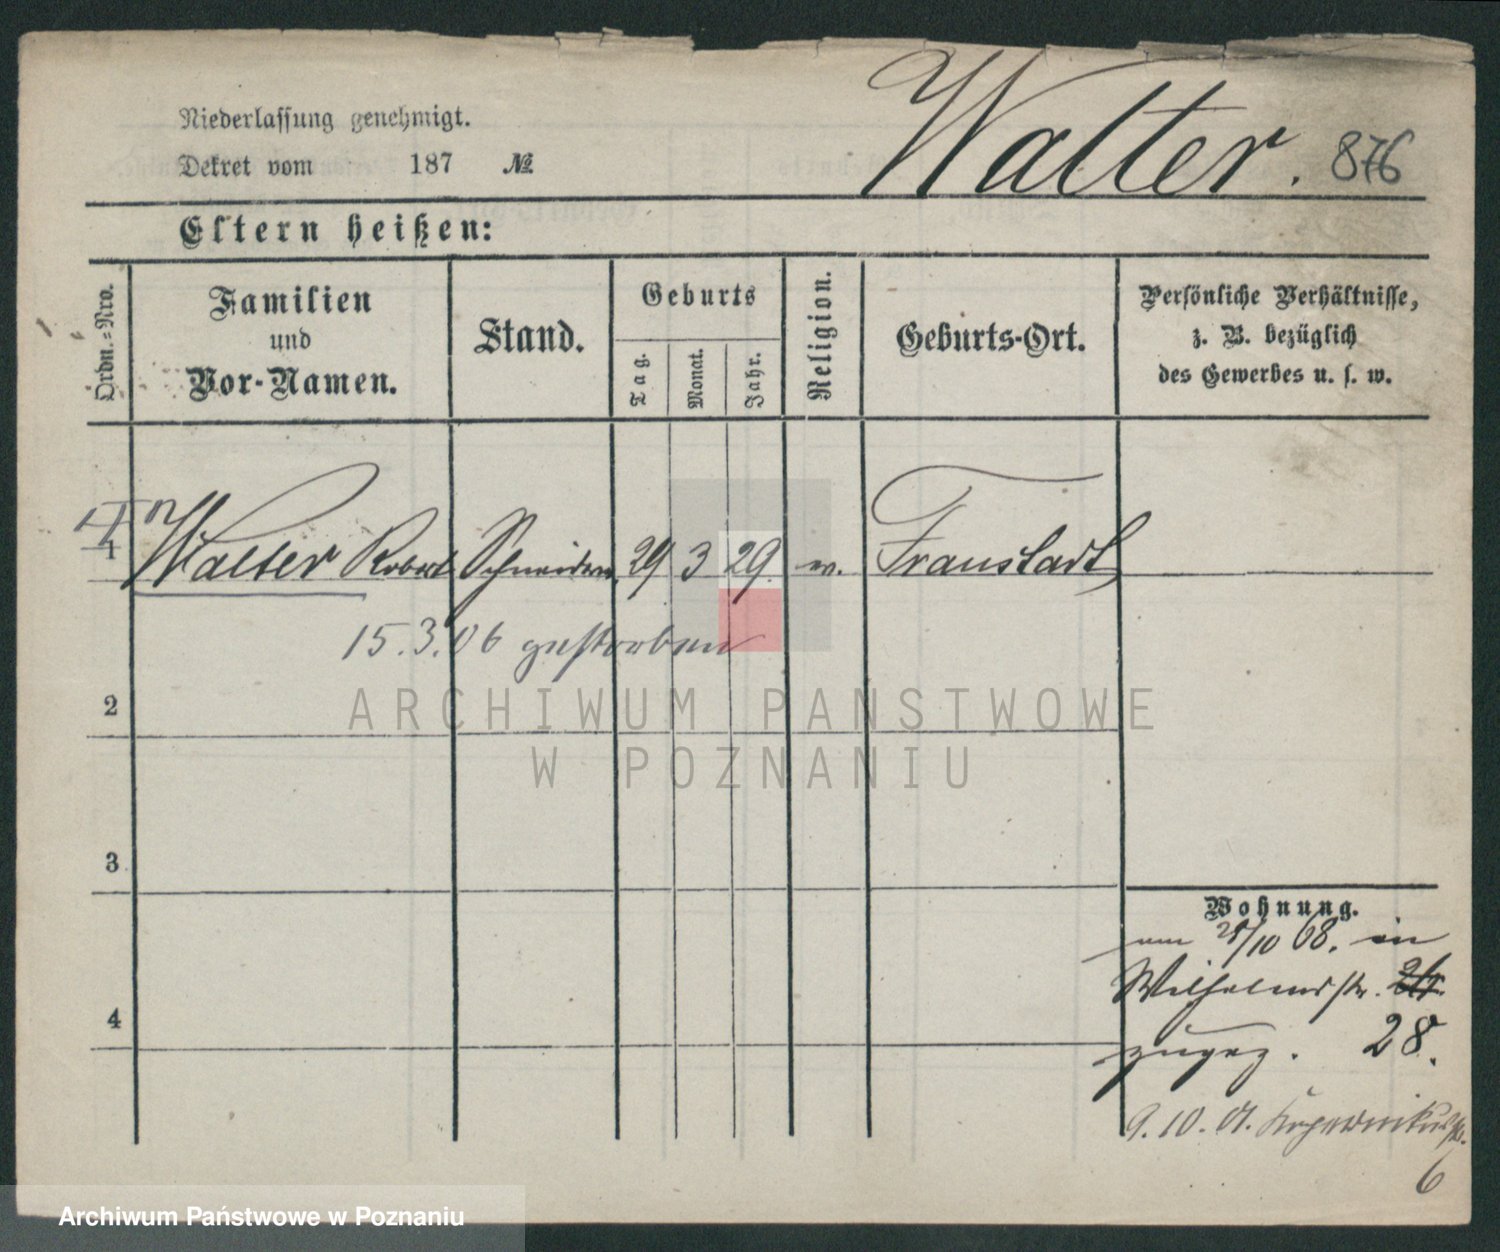 Walter. 876
Niederlassung genehmigt.
Dekret vom 187 №
Eltern heißen:
Ordn.-Nro.
Familien
und
Vor-Namen.
Stand.
Geburts
Tag.
Monat.
Jahr.
Religion.
Geburts-Ort.
Persönliche Verhältnisse,
z. B. bezüglich
des Gewerbes u. s. w.
1 Walter Robert 29 3 29. Fraustadt
15.3.06 gestorben
2
ARCHIWUM PAŃSTWOWE
W POZNANIU
3
Wohnung.
/10 68. in
Wilhelmsstr.
4
zugez. 28.
9.10.01. Kopernikusstr.
6
Archiwum Państwowe w Poznaniu